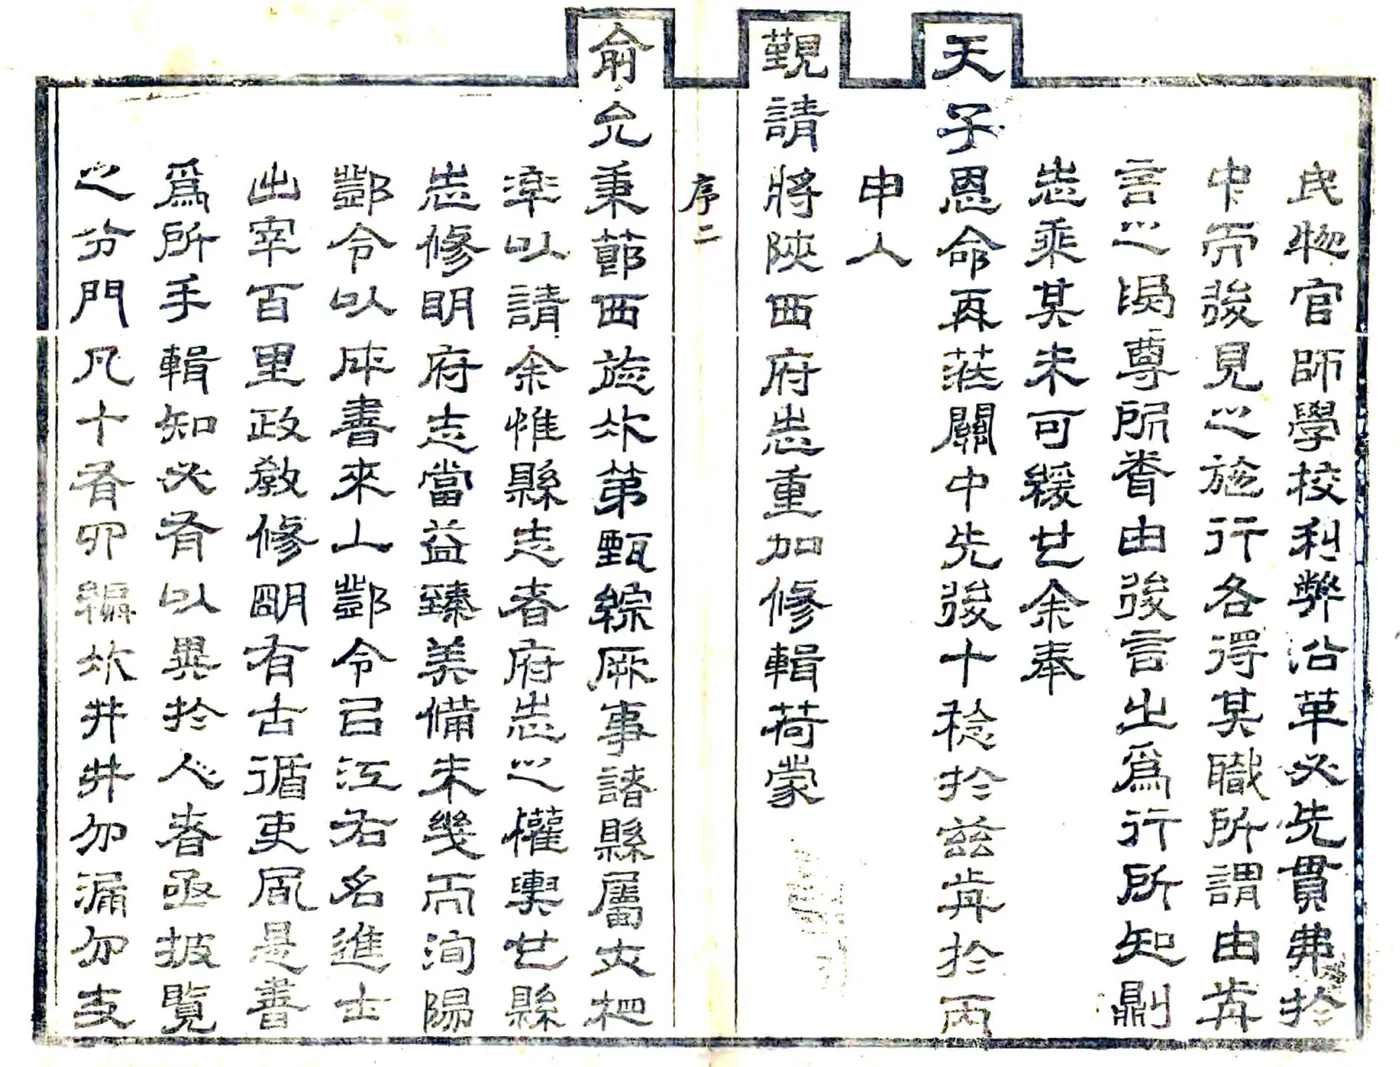 民物官師學校利弊沿革必先貫弗於
中而後見之施行各得其職所謂由前
言之尊所聞由後言之爲行所知則
志乘其未可緩也余奉
天子恩命再莅關中先後十稔於茲前於丙
申入
覲請將陝西府志重加修輯荷蒙
序二
俞允秉節西旋亦第甄綜厥事諸縣屬文杷
率以請余惟縣志者府志之權輿也縣
志修明府志當益臻美備未幾而洵陽
鄧令以成書來上鄧令㠯江右名進士
出宰百里政教修明有古循吏風是書
爲所手輯知必有以異於人者亟披覽
之分門凡十有四編亦井井勿漏勿支